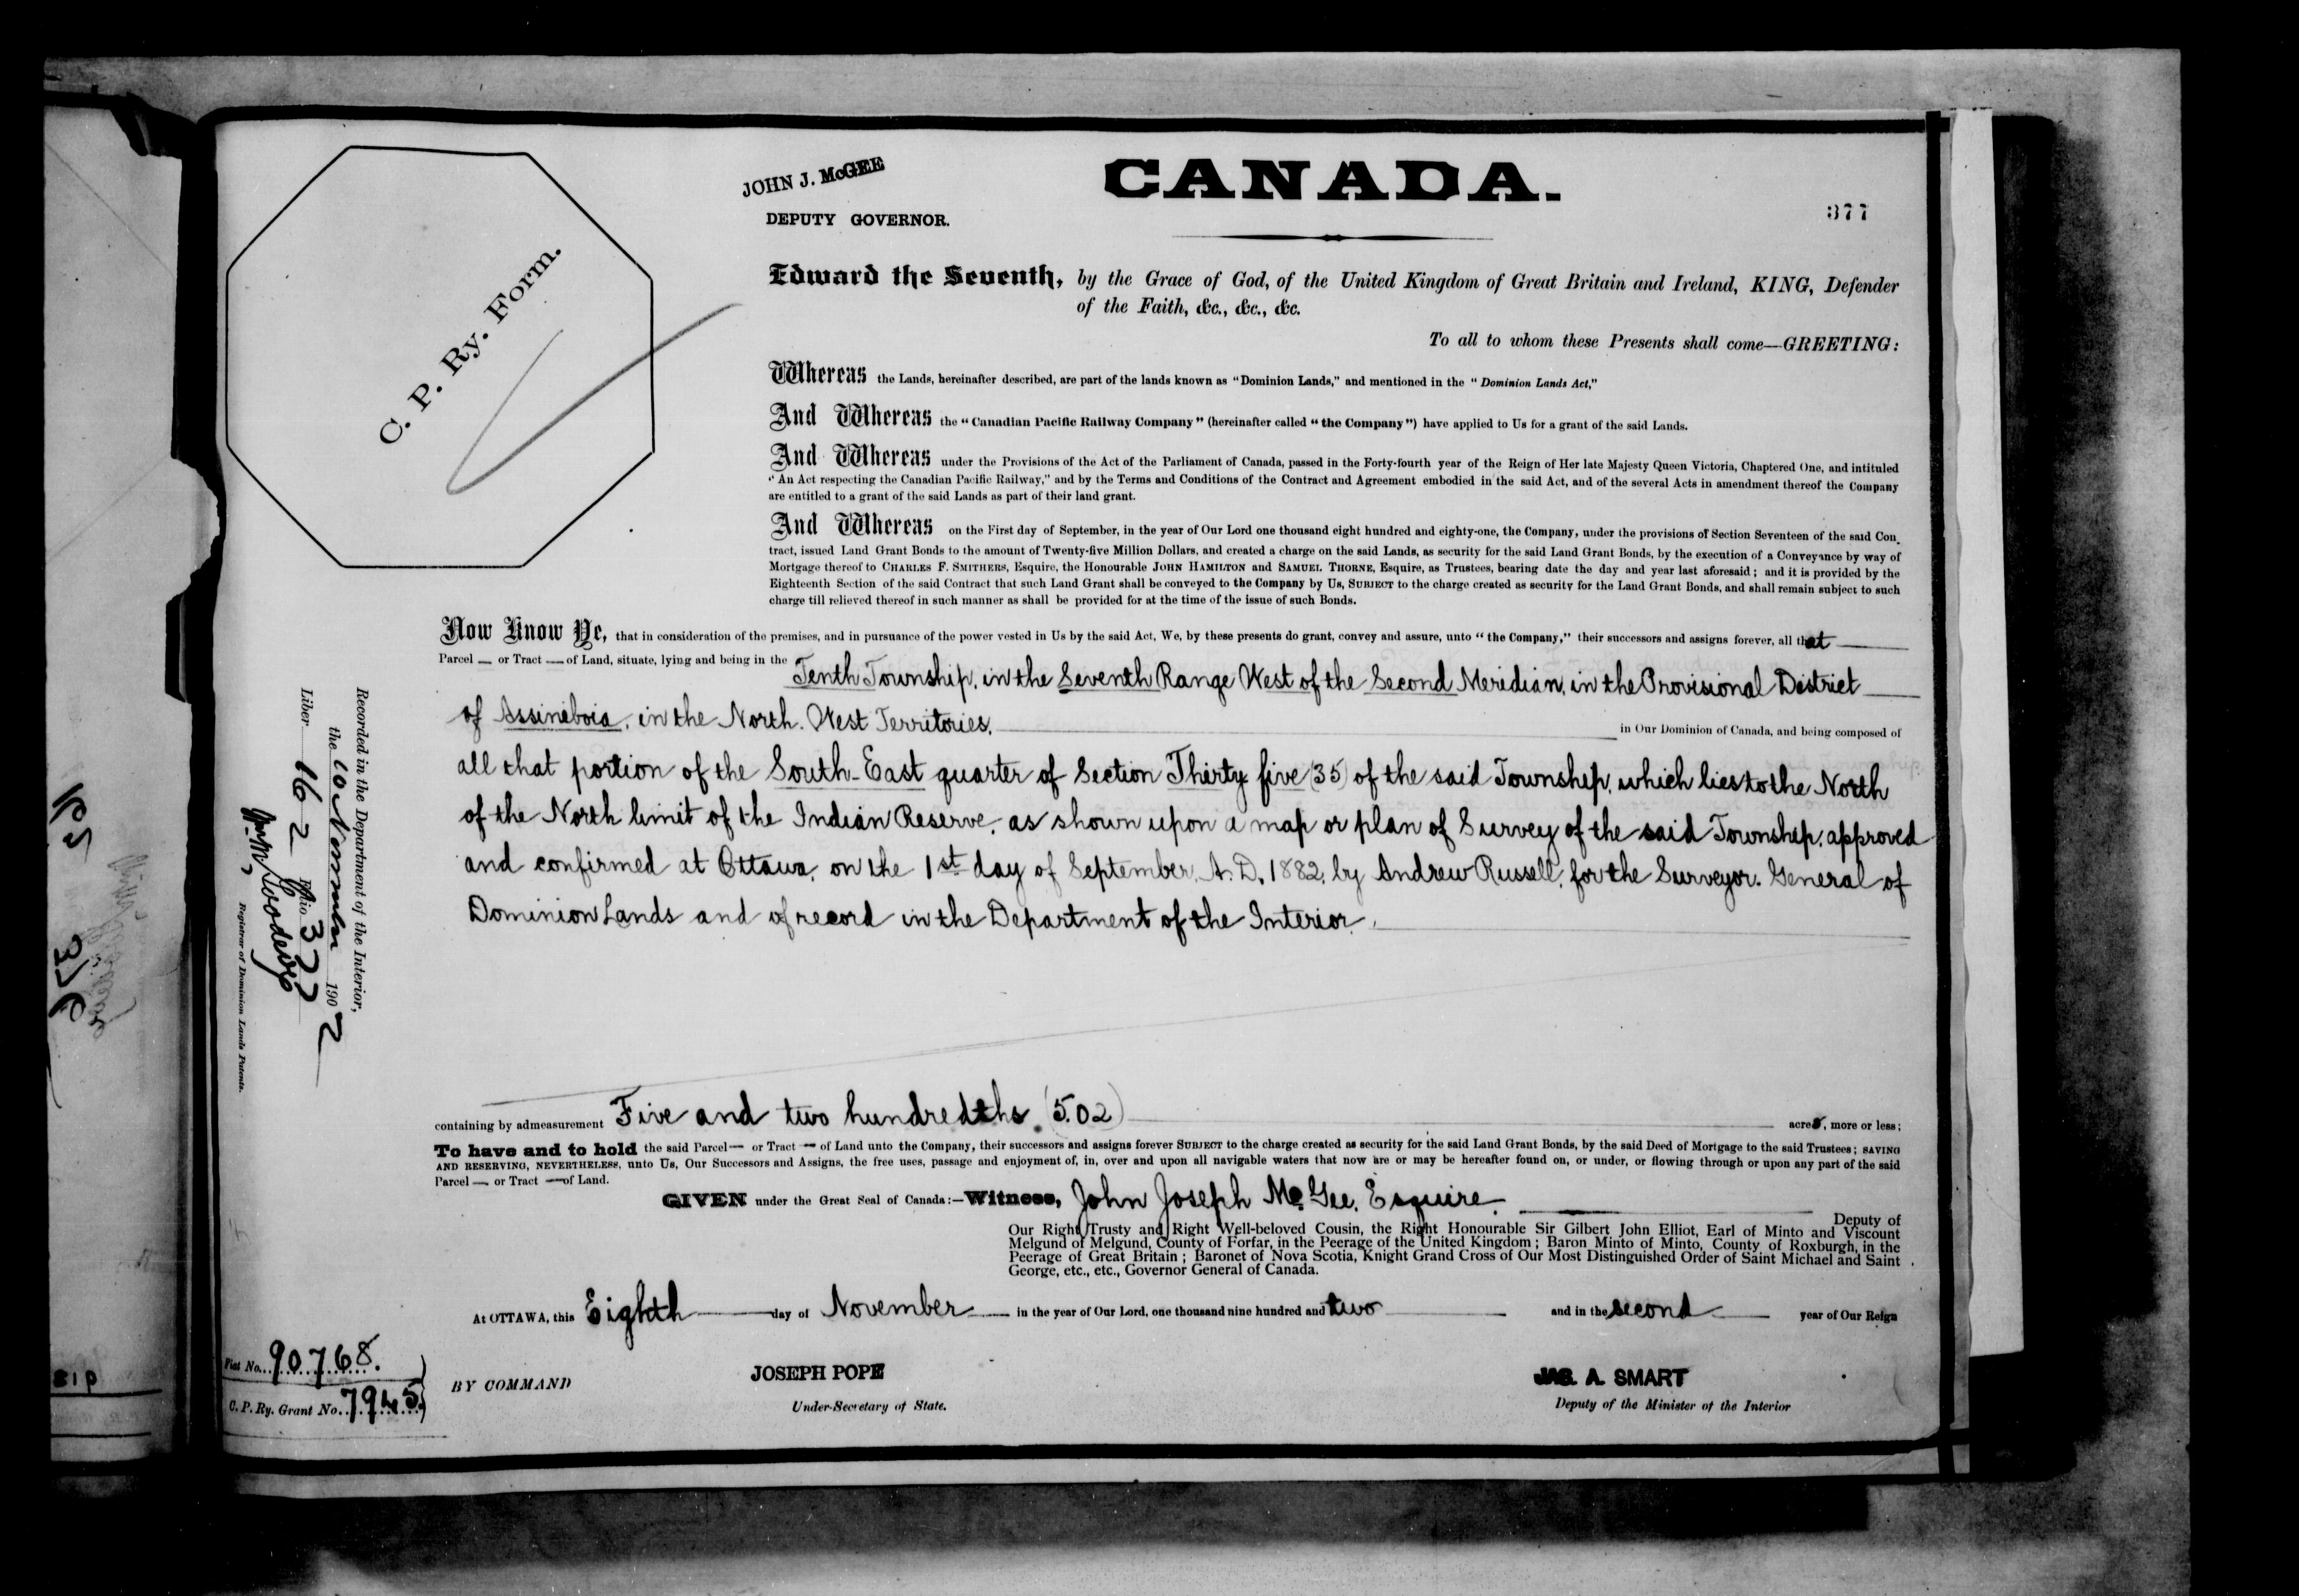 C. P. Ry. Form.
JOHN J. McGEE
DEPUTY GOVERNOR.
CANADA.
377
Edward the Seventh, by the Grace of God, of the United Kingdom of Great Britain and Ireland, KING, Defender
of the Faith, &c., &c., &c.
To all to whom these Presents shall come—GREETING:
Whereas the Lands, hereinafter described, are part of the lands known as "Dominion Lands," and mentioned in the "Dominion Lands Act,"
And Whereas the "Canadian Pacific Railway Company" (hereinafter called "the Company") have applied to Us for a grant of the said Lands.
And Whereas under the Provisions of the Act of the Parliament of Canada, passed in the Forty-fourth year of the Reign of Her late Majesty Queen Victoria, Chaptered One, and intituled
"An Act respecting the Canadian Pacific Railway," and by the Terms and Conditions of the Contract and Agreement embodied in the said Act, and of the several Acts in amendment thereof the Company
are entitled to a grant of the said Lands as part of their land grant.
And Whereas on the First day of September, in the year of Our Lord one thousand eight hundred and eighty-one, the Company, under the provisions of Section Seventeen of the said Con-
tract, issued Land Grant Bonds to the amount of Twenty-five Million Dollars, and created a charge on the said Lands, as security for the said Land Grant Bonds, by the execution of a Conveyance by way of
Mortgage thereof to CHARLES F. SMITHERS, Esquire, the Honourable JOHN HAMILTON and SAMUEL THORNE, Esquire, as Trustees, bearing date the day and year last aforesaid; and it is provided by the
Eighteenth Section of the said Contract that such Land Grant shall be conveyed to the Company by Us, SUBJECT to the charge created as security for the Land Grant Bonds, and shall remain subject to such
charge till relieved thereof in such manner as shall be provided for at the time of the issue of such Bonds.
Now Know Ye, that in consideration of the premises, and in pursuance of the power vested in Us by the said Act, We, by these presents do grant, convey and assure, unto "the Company," their successors and assigns forever, all that
Parcel — or Tract — of Land, situate, lying and being in the Tenth Township, in the Seventh Range West of the Second Meridian, in the Provisional District
of Assiniboia, in the North-West Territories, in Our Dominion of Canada, and being composed of
all that portion of the South-East quarter of Section Thirty five (35) of the said Township, which lies to the North
of the North limit of the Indian Reserve, as shown upon a map or plan of Survey of the said Township, approved
and confirmed at Ottawa, on the 1st day of September, A.D. 1882, by Andrew Russell, for the Surveyor-General of
Dominion Lands and of record in the Department of the Interior.
containing by admeasurement Five and two hundredths (5.02) acres, more or less;
To have and to hold the said Parcel — or Tract — of Land unto the Company, their successors and assigns forever SUBJECT to the charge created as security for the said Land Grant Bonds, by the said Deed of Mortgage to the said Trustees; SAVING
AND RESERVING, NEVERTHELESS, unto Us, Our Successors and Assigns, the free uses, passage and enjoyment of, in, over and upon all navigable waters that now are or may be hereafter found on, or under, or flowing through or upon any part of the said
Parcel — or Tract — of Land.
GIVEN under the Great Seal of Canada:—Witness, John Joseph McGee, Esquire,
Deputy of
Our Right Trusty and Right Well-beloved Cousin, the Right Honourable Sir Gilbert John Elliot, Earl of Minto and Viscount
Melgund of Melgund, County of Forfar, in the Peerage of the United Kingdom; Baron Minto of Minto, County of Roxburgh, in the
Peerage of Great Britain; Baronet of Nova Scotia, Knight Grand Cross of Our Most Distinguished Order of Saint Michael and Saint
George, etc., etc., Governor General of Canada.
At OTTAWA, this Eighth day of November in the year of Our Lord, one thousand nine hundred and two and in the second year of Our Reign
BY COMMAND
JOSEPH POPE
Under-Secretary of State.
JAS. A. SMART
Deputy of the Minister of the Interior
Fiat No. 90768.
C. P. Ry. Grant No. 7945
Recorded in the Department of the Interior,
the 10 November 1902
Liber 162 Folio 377
Registrar of Dominion Lands Patents.